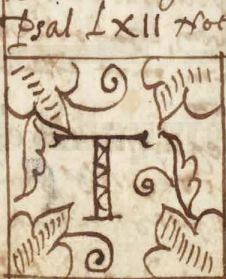 Psal LXII Not
T